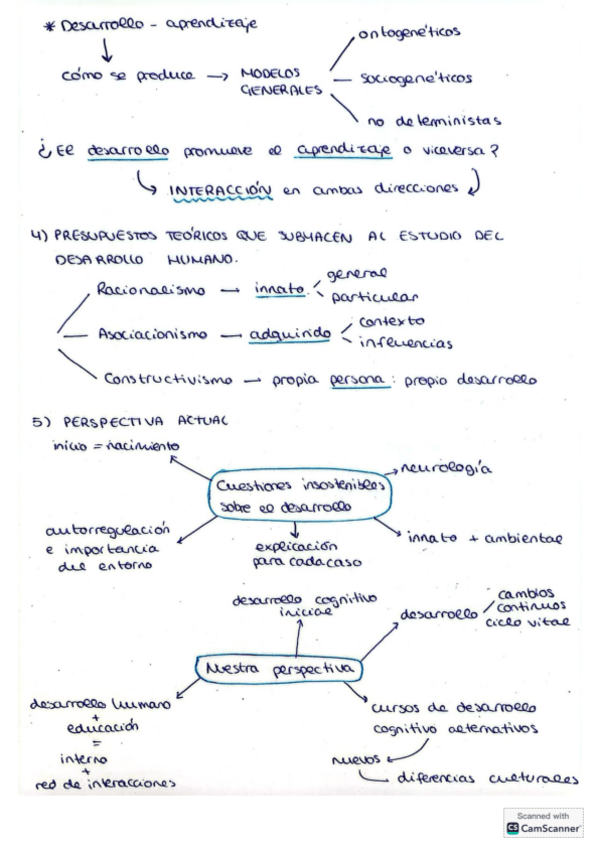 * Desarrollo - aprendizaje
cómo se produce → MODELOS GENERALES
ontogenéticos
sociogenéticos
no deterministas
¿El desarrollo promueve el aprendizaje o viceversa?
INTERACCIÓN en ambas direcciones
4) PRESUPUESTOS TEÓRICOS QUE SUBYACEN AL ESTUDIO DEL
DESARROLLO HUMANO.
Racionalismo → innato
general
particular
Asociacionismo → adquirido
contexto
influencias
Constructivismo → propia persona: propio desarrollo
5) PERSPECTIVA ACTUAL
inicio = nacimiento
Cuestiones insostenibles
sobre el desarrollo
neurología
autorregulación
e importancia
del entorno
explicación
para cada caso
innato + ambiental
desarrollo cognitivo
inicial
desarrollo
cambios
continuos
ciclo vital
Nuestra perspectiva
desarrollo humano
+
educación
=
interno
+
red de interacciones
cursos de desarrollo
cognitivo alternativos
nuevos
diferencias culturales
Scanned with
CS CamScanner